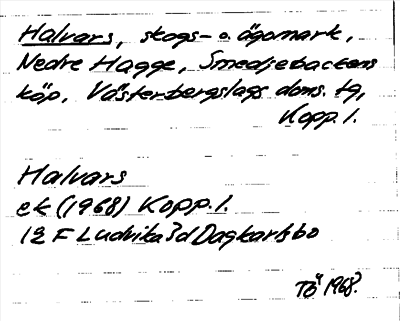 Halvars, skogs- o. ägomark,
Nedre Hagge, Smedjebackens
köp. Västerbergslags doms. tg,
Kopp. l.
Halvars
ek (1968) Kopp. l.
12 F Ludvika 3d Dagkarlsbo
TÖ 1968